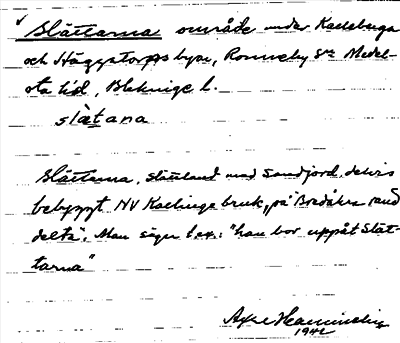 Slättarna område under Kallebergs
och Häggatorps byar, Ronneby sn Medel-
sta hd, Blekinge l.
slätana
Slättarna, slättland med sandjord, delvis
bebyggt NV Kallinge bruk, "på Bredåkra sand
delta". Man säger t.ex.: "han bor uppåt Slät-
tarna"
1942